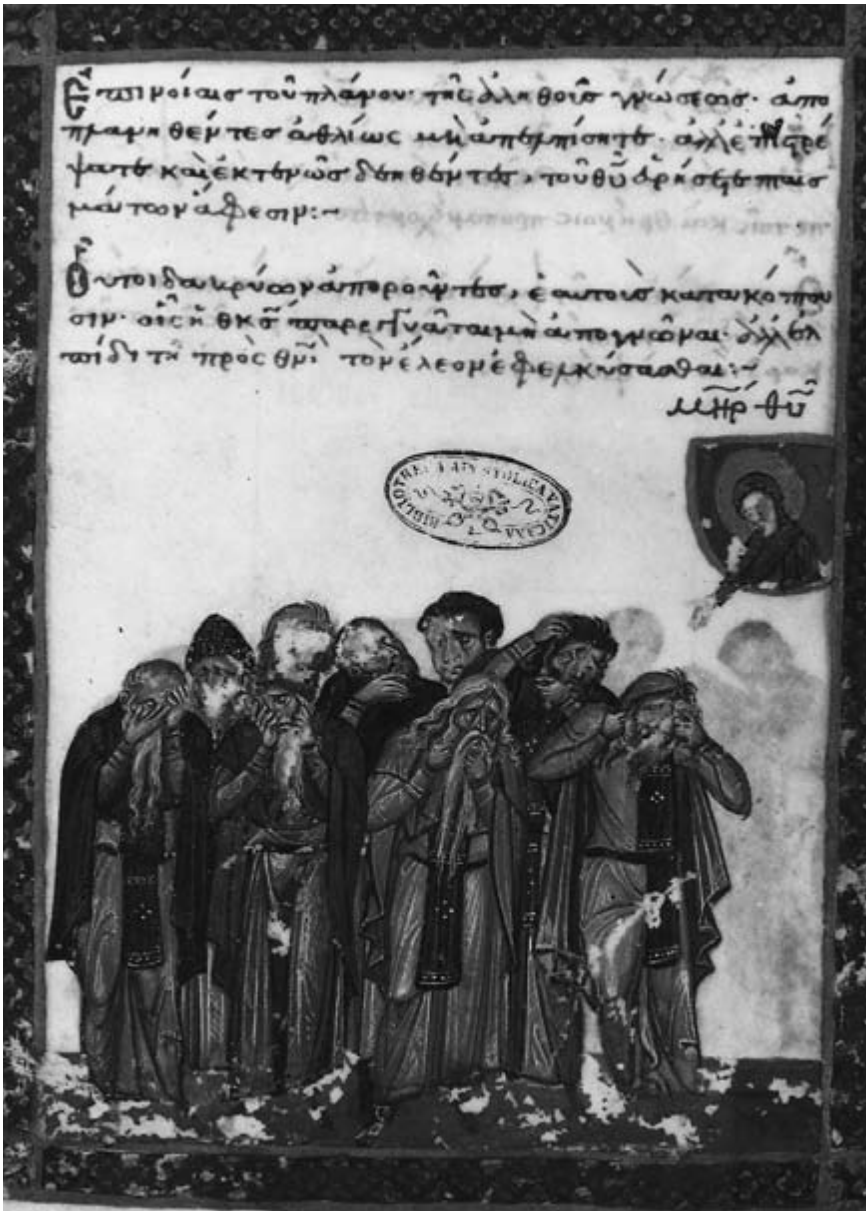 Ἐπινοίαις τοῦ πλάνου· τῆς ἀληθοῦς γνώσεως· ἀπο
πλανηθέντες ἀθλίως μὴ ἀπελπίσητε· ἀλλ' ἐπιστρέ
ψατε καὶ ἐκτενῶς δεηθέντες, τοῦ θῦ εὑρήσετε πταισ
μάτων ἄφεσιν:~
Οὗτοι δακρύων ἀποροῦντες, ἑαυτοὺς κατακόπτου
σιν· οἷς ἡ παρεγγυᾶται μὴ ἀπογνῶναι· ἀλλ' ἐλ
πίδι τῇ πρὸς θν τὸν ἔλεον ἐφελκύσασθαι:~
μηρ θυ
BIBLIOTHECA APOSTOLICA VATICANA